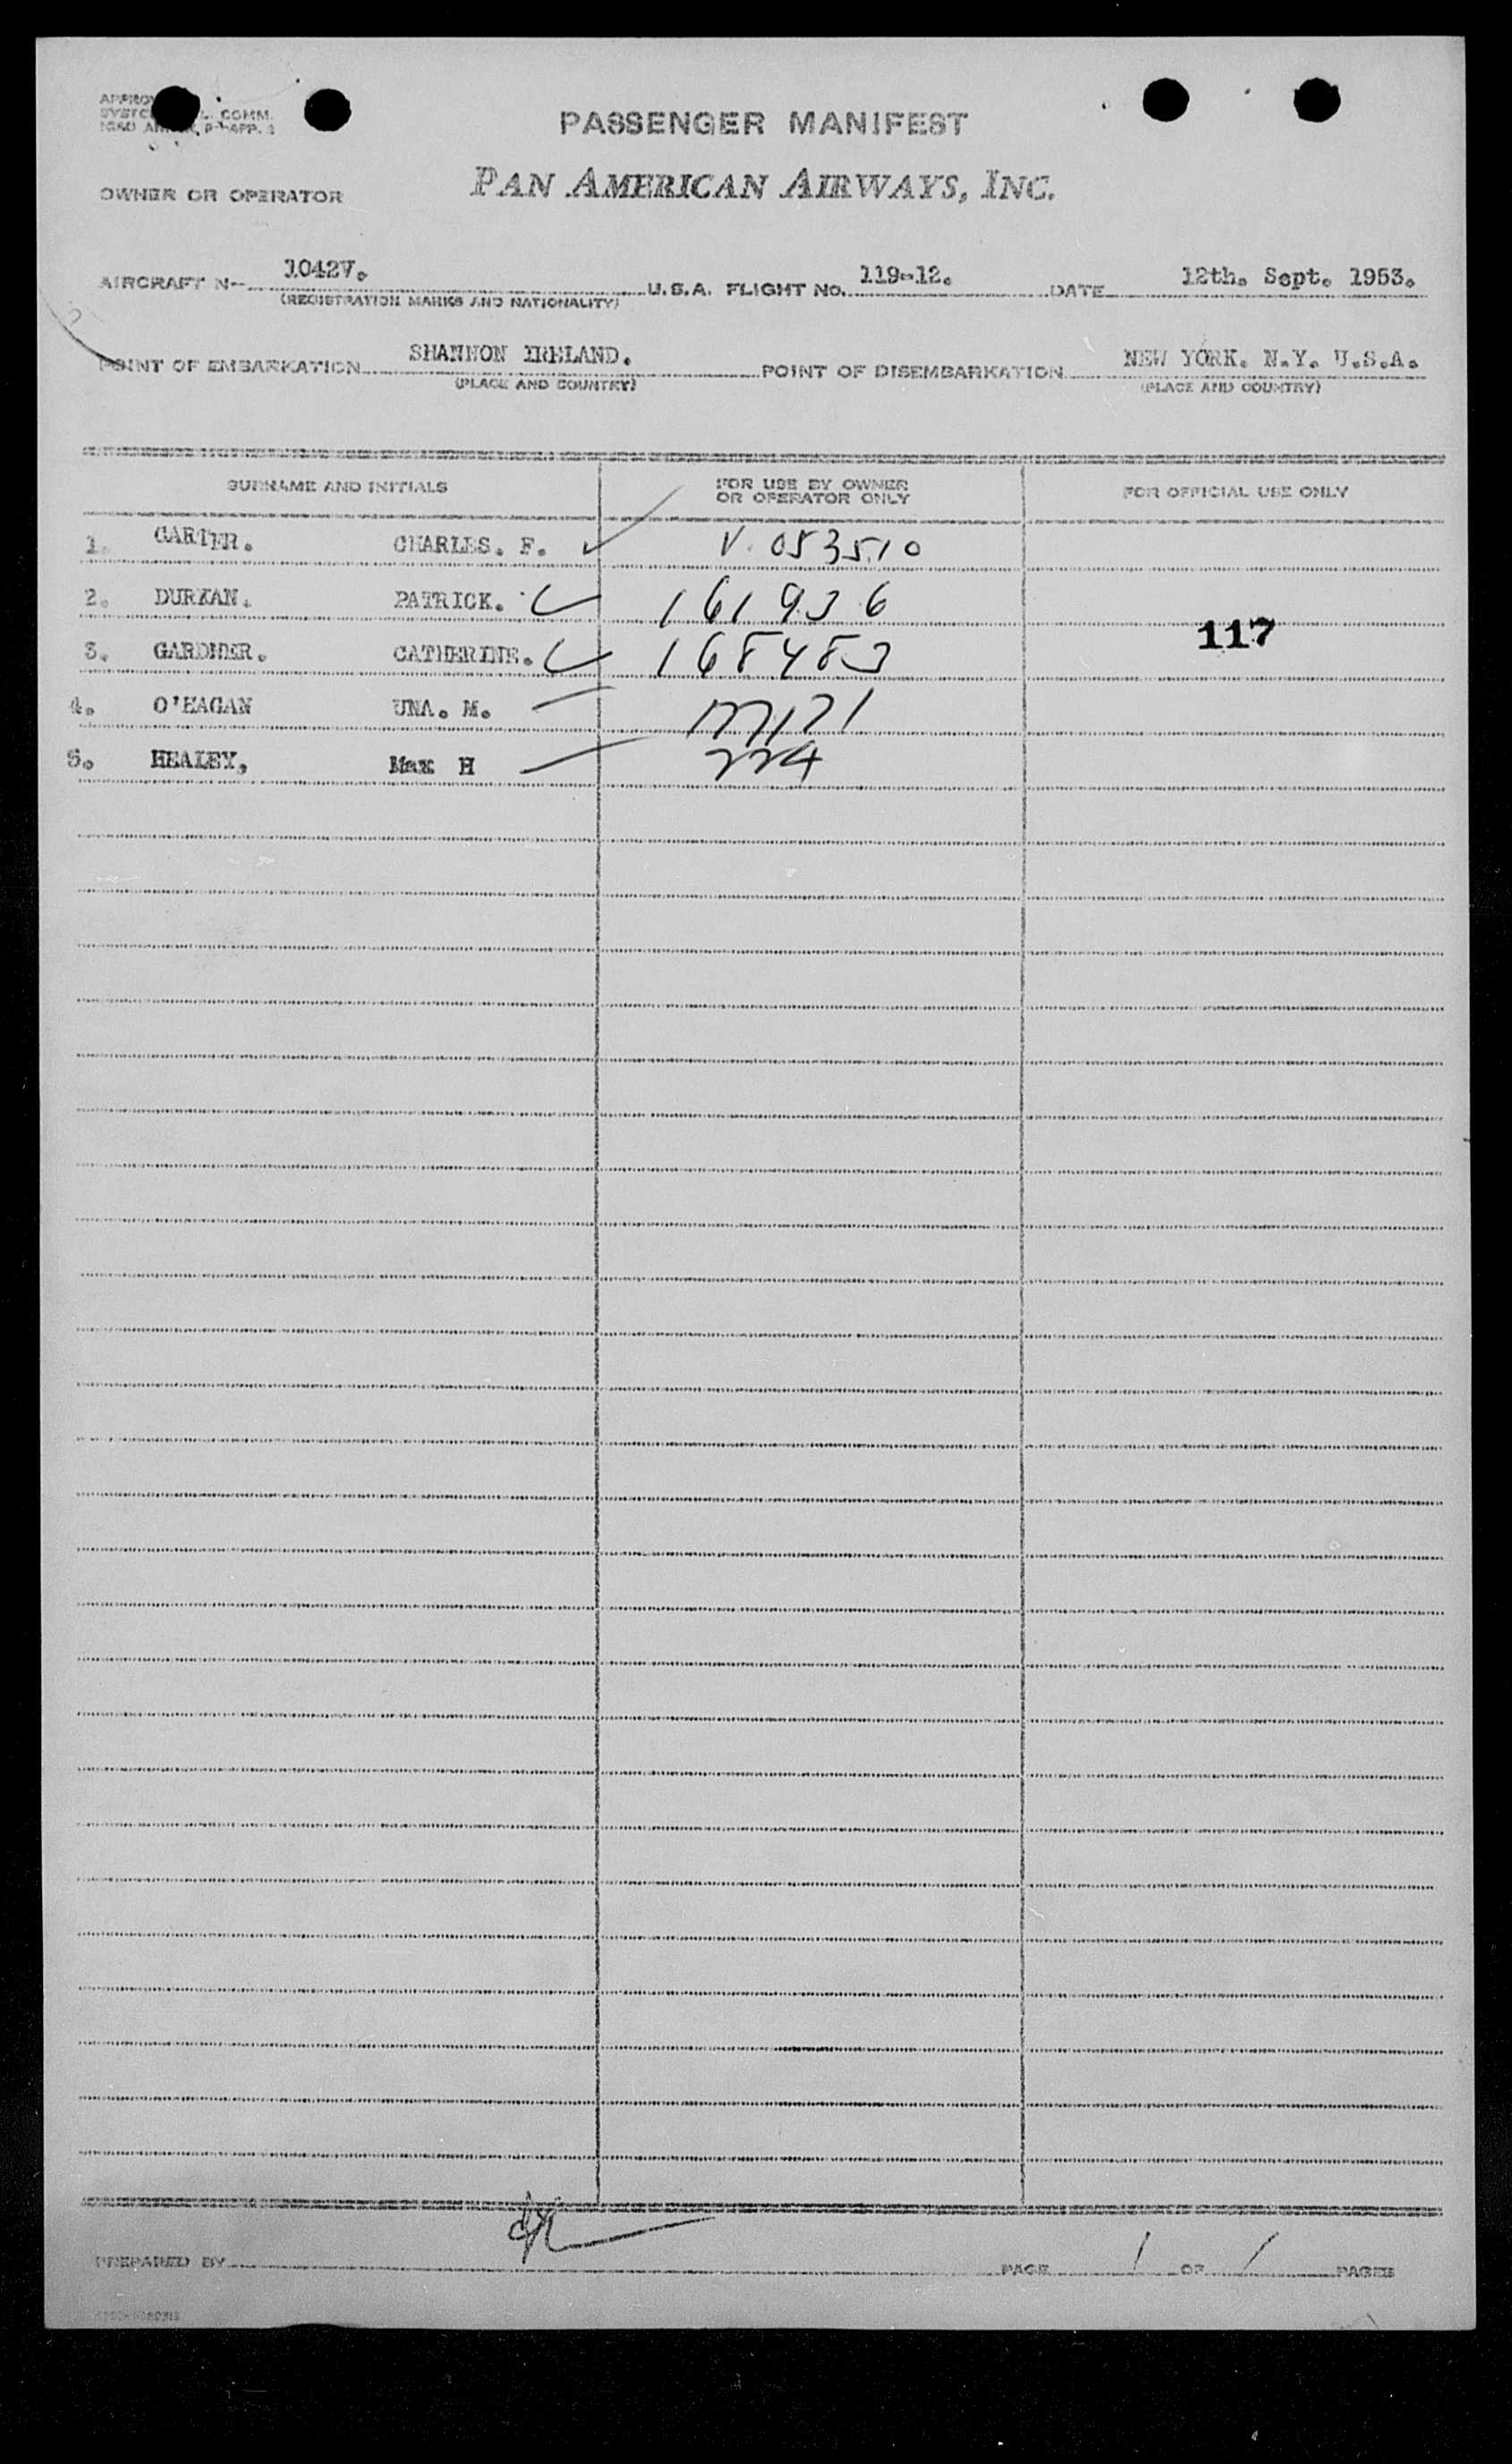 PASSENGER MANIFEST
OWNER OR OPERATOR PAN AMERICAN AIRWAYS, INC.
AIRCRAFT N- 1042V. U.S.A. FLIGHT NO. 119-12. DATE 12th. Sept. 1953.
(REGISTRATION MARKS AND NATIONALITY)
POINT OF EMBARKATION SHANNON IRELAND. POINT OF DISEMBARKATION NEW YORK. N.Y. U.S.A.
(PLACE AND COUNTRY) (PLACE AND COUNTRY)
SURNAME AND INITIALS FOR USE BY OWNER OR OPERATOR ONLY FOR OFFICIAL USE ONLY
1. CARTER. CHARLES. F. V. 053510
2. DURKAN. PATRICK. 161936
117
3. GARDNER. CATHERINE. 168483
4. O'HAGAN UNA. M.
5. HEALEY, Max H 224
PREPARED BY PAGE 1 OF 1 PAGES